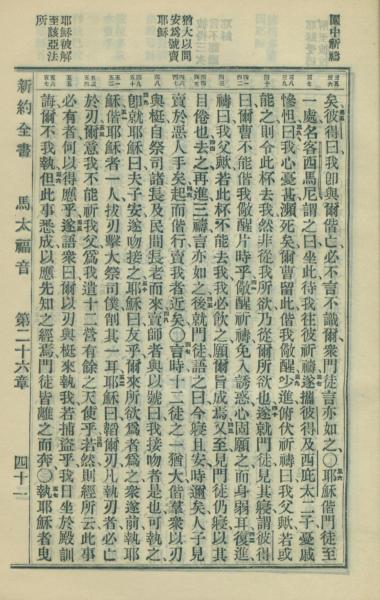 園中祈禱
猶大以問
安為號賣
耶穌
耶穌被解
至該亞法
所
矣彼得曰我卽與爾偕亡必不言不識爾衆門徒言亦如之〇耶穌偕門徒至
一處名客西馬尼謂之曰坐此待我往彼祈禱遂攜彼得及西庇太二子憂戚
慘怛曰我心憂甚瀕死矣爾曹留此偕我儆醒少進俯伏祈禱曰我父歟若或
能之則令此杯去我然非從我所欲乃從爾所欲也遂就門徒見其寢謂彼得
曰爾曹不能偕我儆醒片時乎儆醒祈禱免入誘惑心固願之而身弱耳復進
禱曰我父歟若此杯不能去我我必飲之願爾旨成焉又至見門徒仍寢以其
目倦也去之再進三禱言亦如之後就門徒語之曰今寢且安時邇矣人子見
賣於惡人手矣起而偕行賣我者近矣〇言時十二徒之一猶大偕羣衆以刃
與梃自祭司諸長及民間長老而來賣師者與以號曰我接吻者是也可執之
卽就耶穌曰夫子安遂吻接之耶穌曰友乎爾來所欲為者為之衆遂前執耶
穌偕耶穌者一人拔刃擊大祭司僕削其一耳耶穌曰韜爾刃凡執刃者必亡
於刃爾意我不能祈我父為我遣十二營有餘之天使乎若然則經所云此事
必有者何以得應乎遂語衆曰爾以刃與梃來執我若捕盜乎我日坐於殿訓
誨爾不我執但此事悉成以應先知之經焉門徒皆離之而奔〇執耶穌者曳
新約全書 馬太福音 第二十六章 四十一